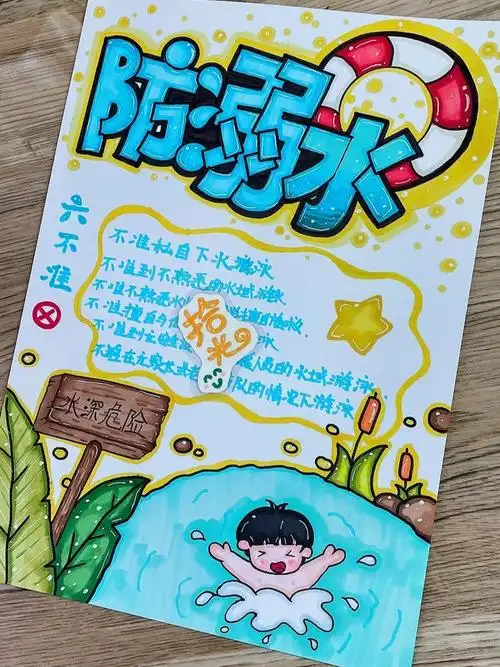 防溺水
六不准
不准私自下水游泳
不准到不熟悉的水域游泳
不准不熟悉水
不准擅自与
不准到无 人员的水域游泳
不准在无家长或 队的情况下游泳
拾
水深危险